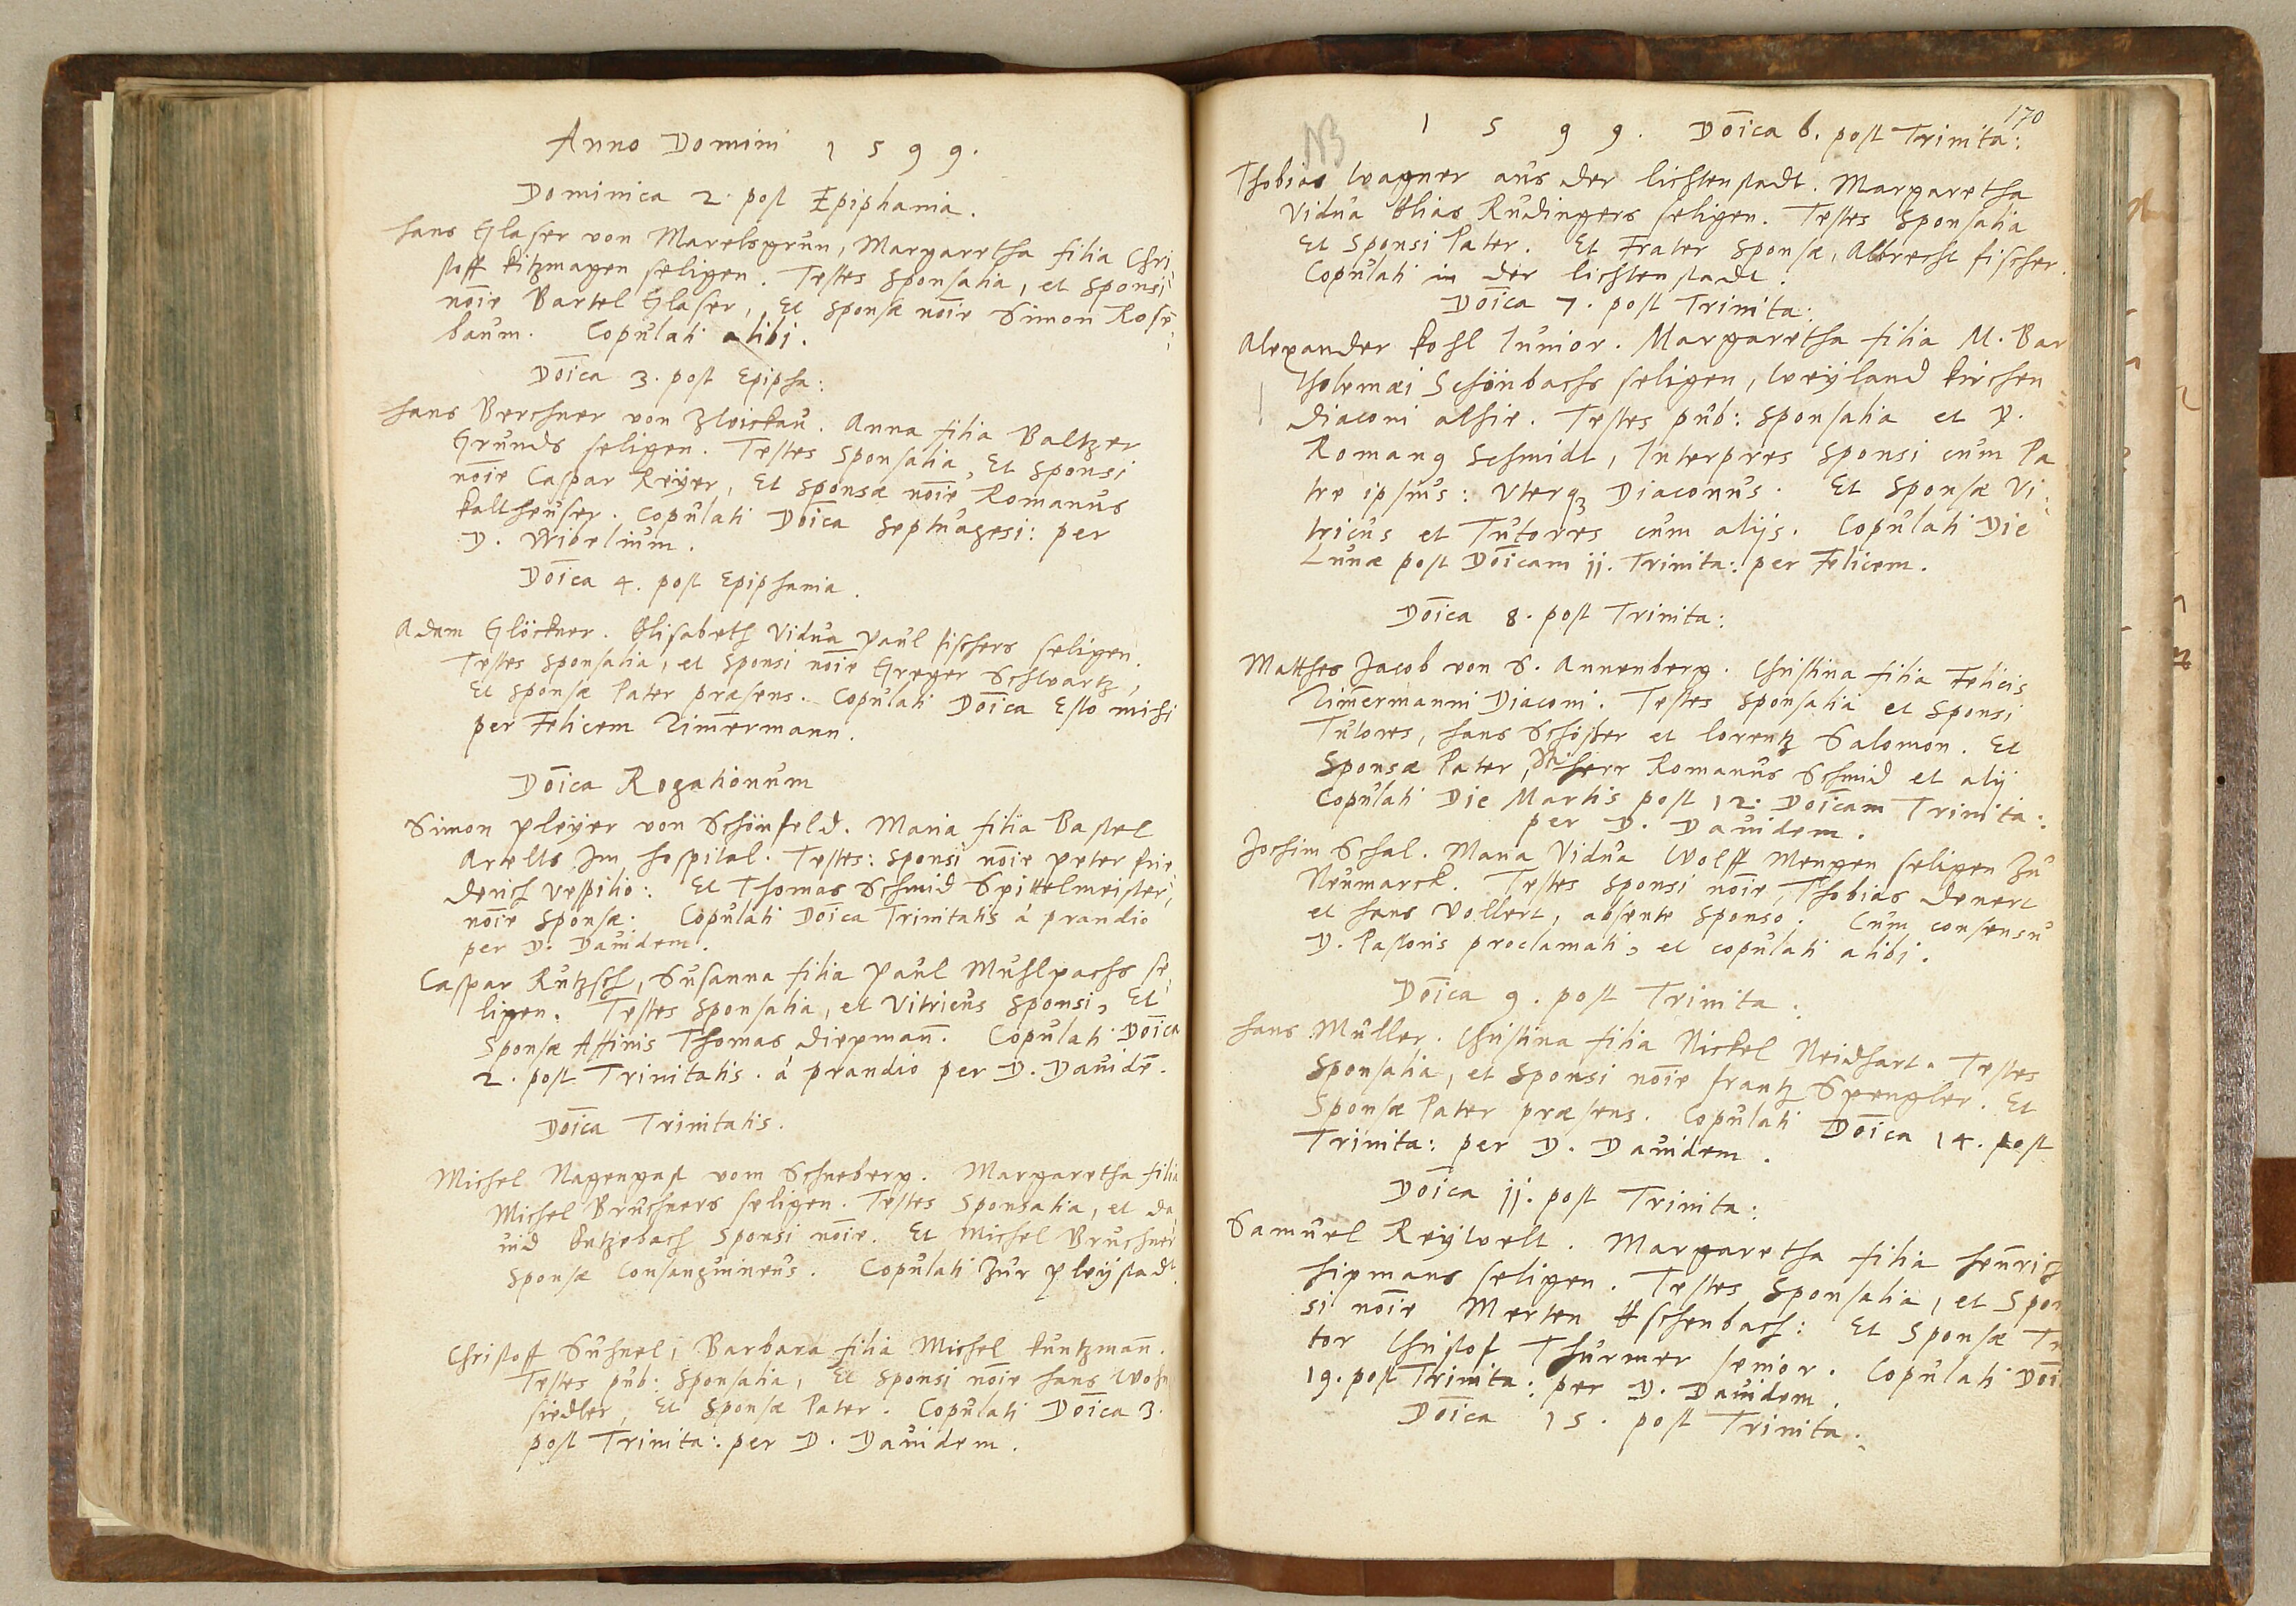 Anno Domini 1599.
Dominica 2. post Epiphania.
Hans Glaser von Marelsgrun, Margaretha filia Chri
stoff Kitzmagen seligen. Testes Sponsalia, et Sponsi
noīe Bartel Glaser, Et Sponsæ noīe Simon Rosē
baum. Copulati alibi.
Doīca 3. post Epipha:
Hans Berchner von Zwickau. Anna filia Baltzer
Grunds seligen. Testes Sponsalia, Et Sponsi
noīe Caspar Reÿer, Et Sponsæ noīe Romanus
Kaltheuser. Copulati Doīca Septuagesi: per
D. Wibelium.
Doīca 4. post Epiphania.
Adam Glöckner. Elisabeth Vidua Paul fischers seligen.
Testes Sponsalia, et Sponsi noīe Greger Schwartz,
Et Sponsæ Pater præsens. Copulati Doīca Esto mihi
per Felicem Zim̄ermann.
Doīca Rogationum
Simon Pleÿer von Schönfeld. Maria filia Bastel
Arelts Im Hospital. Testes: Sponsi noīe Peter frie
derich Vespilio: Et Thomas Schmid Spittelmeister,
noīe Sponsæ. Copulati Doīca Trinitatis à prandio
per D. Dauidem.
Caspar Rutzsch, Susanna filia Paul Muhlpachs se
ligen. Testes Sponsalia, et Vitricus Sponsi, Et
Sponsæ Affinis Thomas diepman̄. Copulati Doīca
2. post Trinitatis. à prandio per D. Dauidē.
Doīca Trinitatis.
Michel Nagengast vom Schneberg. Margaretha filia
Michel Bruchners seligen. Testes Sponsalia, et da
uid Entzebach Sponsi noīe. Et Michel Bruchner
Sponsæ Consanguineus. Copulati Zur Pleÿstadt.
Christoff Suhnel, Barbara filia Michel Kuntzman̄.
Testes pub: Sponsalia, Et Sponsi noīe Hans Wohn
siedler, Et Sponsæ Pater. Copulati Doīca 3.
post Trinita: per D. Dauidem.
170
NB 1599. Doīca 6. post Trinita:
Thobias Wagner aus der lichtenstadt. Margaretha
Vidua Elias Rudingers seligen. Testes Sponsalia
Et Sponsi Pater. Et Frater Sponsæ, Albrecht fischer.
Copulati in der lichtenstadt.
Doīca 7. post Trinita:
Alexander Kohl Iunior. Margaretha filia M. Bar
tholemæi Schönbachs seligen, Weÿland Kirchen
diaconi alhie. Testes pub: Sponsalia et D.
Romang Schmidt, Interpres Sponsi cum Pa
tre ipsius: Vterqꝫ Diaconus. Et Sponsæ Vi
tricus et Tutores cum alijs. Copulati Die
Lunæ post Doīcam 11. Trinita: per Felicem.
Doīca 8. post Trinita:
Matthes Jacob von S. Annenberg. Christina filia Felicis
Zim̄ermanni Diaconi. Testes Sponsalia et Sponsi
Tutores, Hans Schösser et lorentz Salomon. Et
Sponsæ Pater, Herr Romanus Schmid et alij
Copulati Die Martis post 12. Doīcam Trinita:
per D. Dauidem.
Jochim Schal. Maria Vidua Wolff Mengen seligen Zu
Neumarck. Testes Sponsi noīe, Thobias denert
et Hans Vollert, absente Sponso. Cum consensu
D. Pastoris proclamati, et copulati alibi.
Doīca 9. post Trinita:
Hans Müller. Christina filia Nickel Neidhart. Testes
Sponsalia, et Sponsi noīe frantz Spengler. Et
Sponsæ Pater præsens. Copulati Doīca 14. post
Trinita: per D. Dauidem.
Doīca 11. post Trinita:
Samuel Reÿwelt. Margaretha filia Henrich
Hipmans seligen. Testes Sponsalia, et Spon
si noīe Merten Eschenbach: Et Sponsæ Tu
tor Christof Thurmer senior. Copulati Doī
19. post Trinita: per D. Dauidem.
Doīca 15. post Trinita: